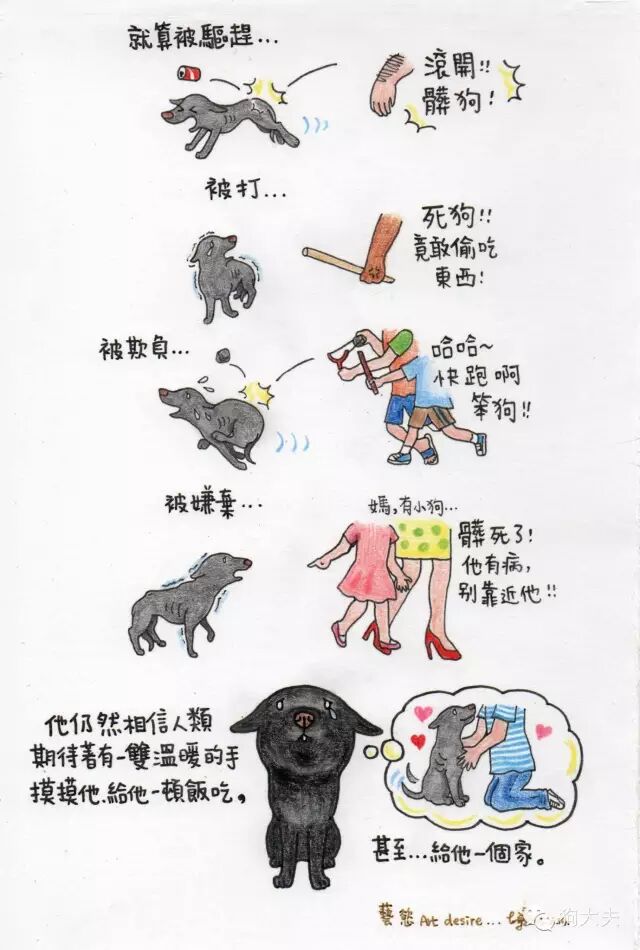 就算被驅趕...
滾開!!
髒狗!
被打...
死狗!!
竟敢偷吃
東西!
被欺負...
哈哈~
快跑啊
笨狗!!
被嫌棄...
媽,有小狗...
髒死了!
他有病,
別靠近他!!
他仍然相信人類
期待著有一雙溫暖的手
摸摸他、給他一頓飯吃,
甚至...給他一個家。
藝慾 Art desire...
狗大夫